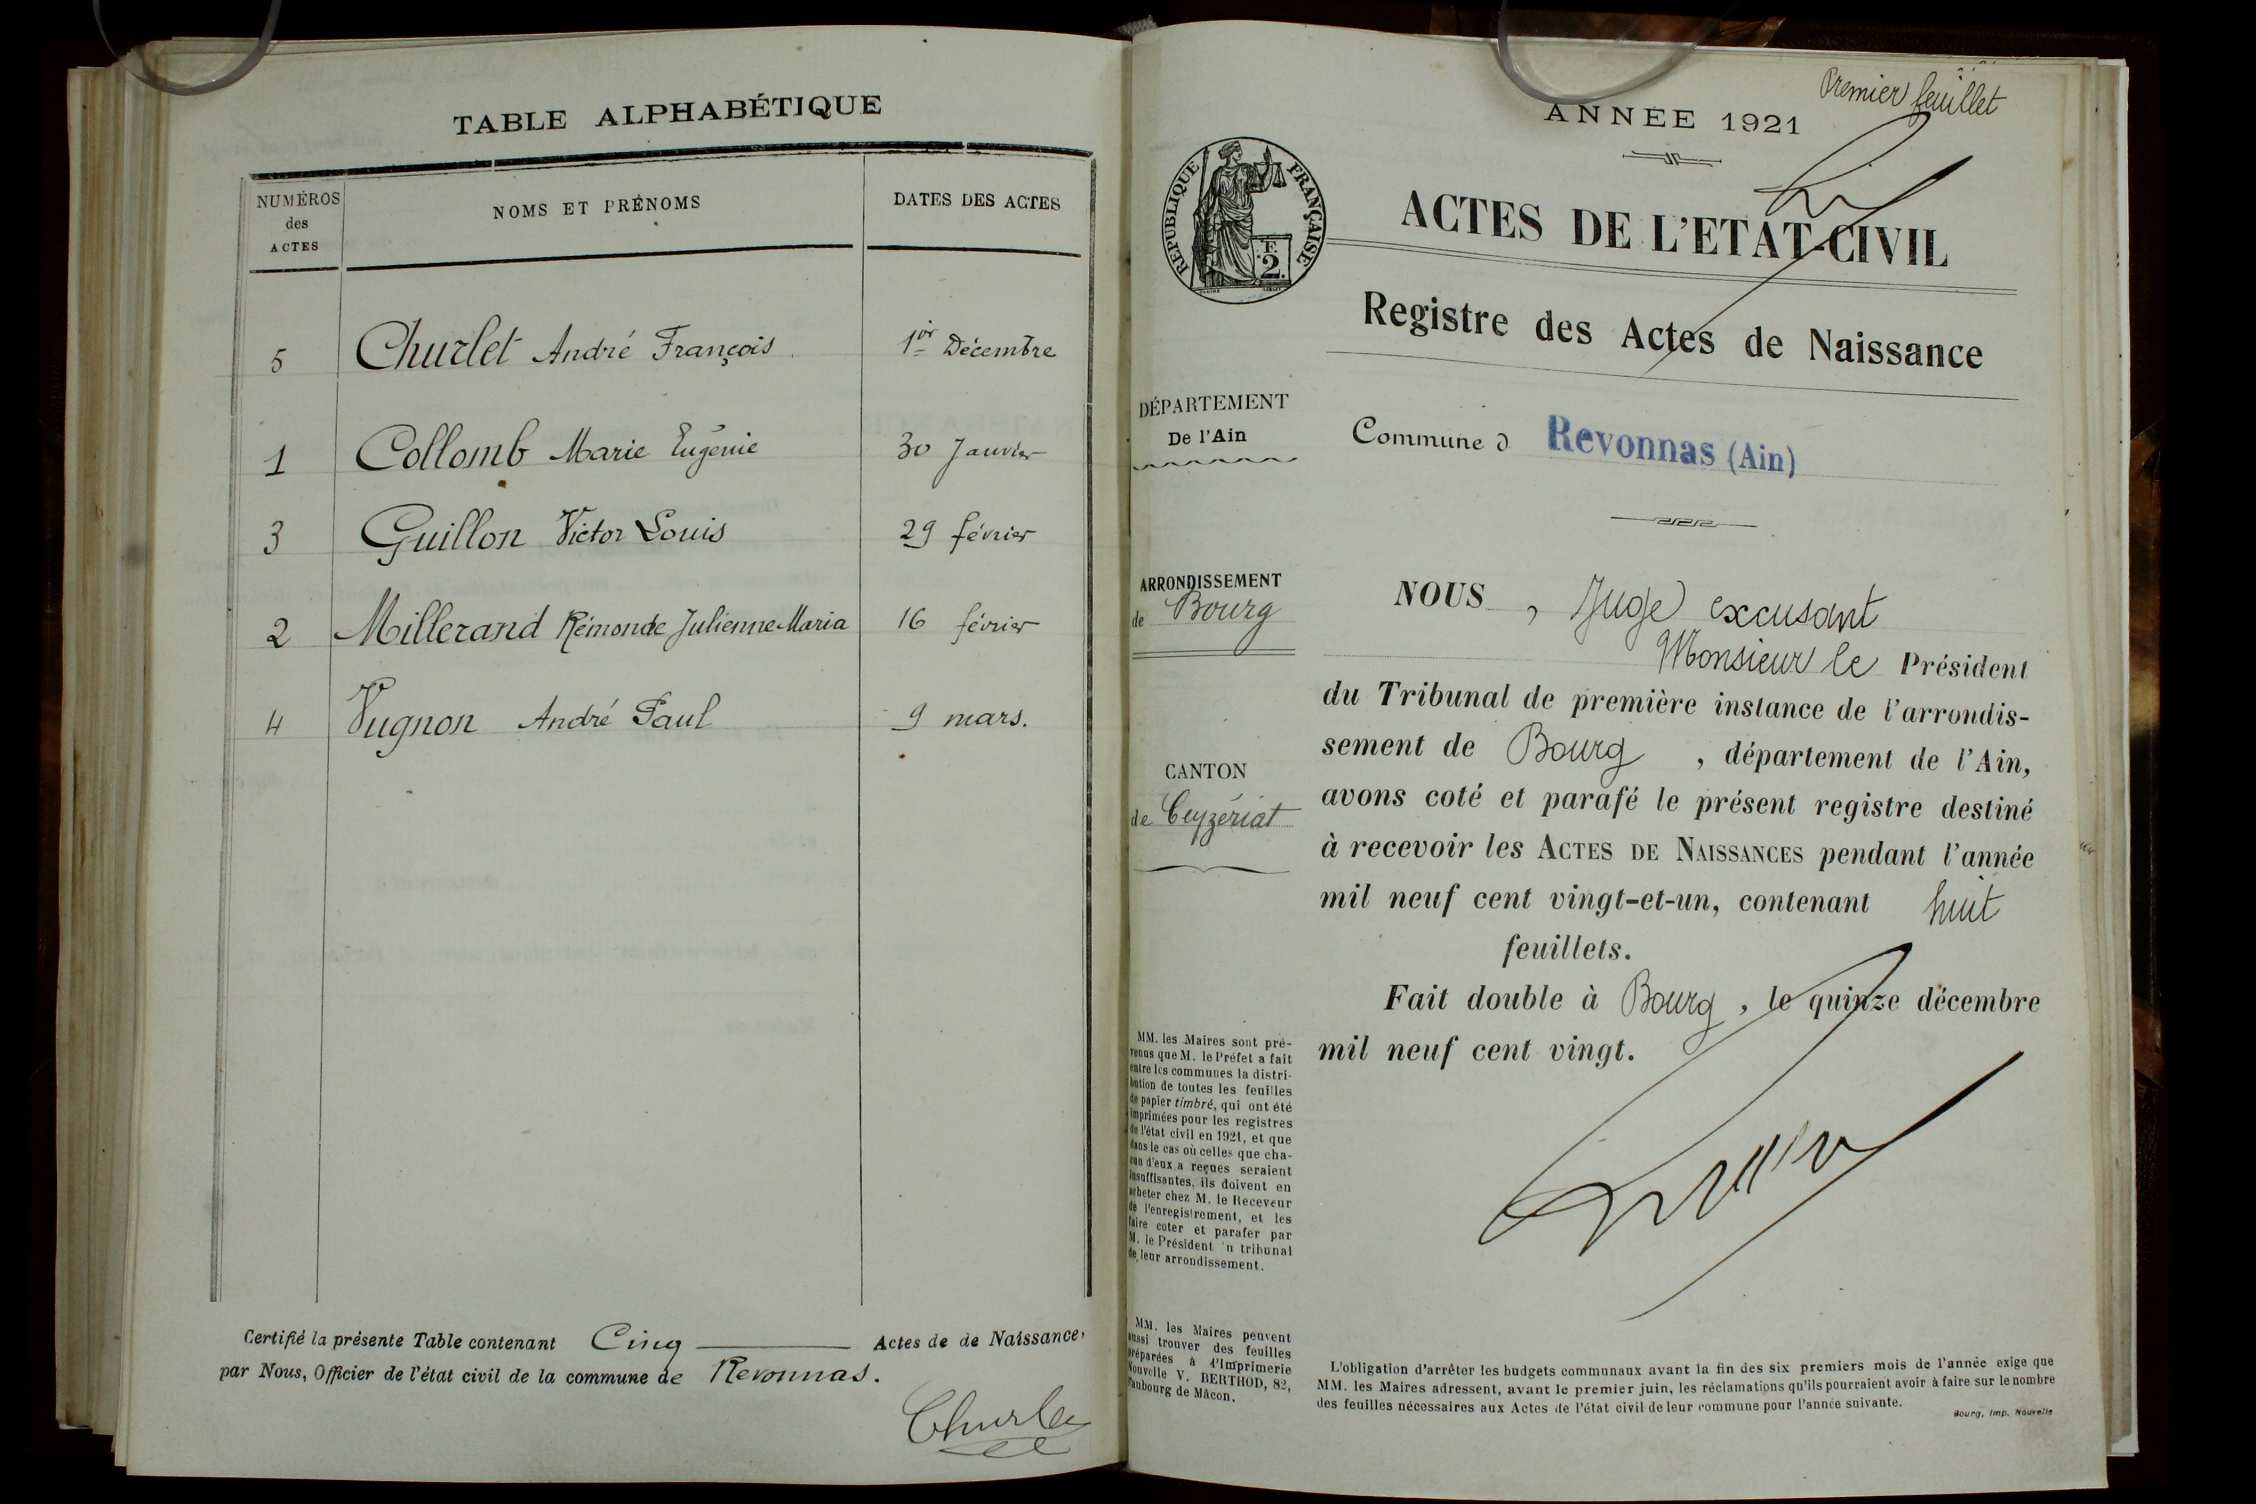 TABLE ALPHABÉTIQUE
NUMÉROS des ACTES
NOMS ET PRÉNOMS
DATES DES ACTES
5 Churlet André François 1er Décembre
1 Collomb Marie Eugénie 30 Janvier
3 Guillon Victor Louis 29 février
2 Millerand Rémonde Julienne Maria 16 février
4 Vugnon André Paul 9 mars.
Certifié la présente Table contenant Cinq Actes de de Naissance,
par Nous, Officier de l'état civil de la commune de Revonnas.
Churlet
Premier feuillet
ANNÉE 1921
RÉPUBLIQUE FRANÇAISE
F.
2
ACTES DE L'ETAT-CIVIL
Registre des Actes de Naissance
DÉPARTEMENT
De l'Ain
Commune d Revonnas (Ain)
ARRONDISSEMENT
de Bourg
CANTON
de Ceyzériat
MM. les Maires sont pré-
venus que M. le Préfet a fait
entre les communes la distri-
bution de toutes les feuilles
de papier timbré, qui ont été
imprimées pour les registres
de l'état civil en 1921, et que
dans le cas où celles que cha-
cun d'eux a reçues seraient
insuffisantes, ils doivent en
acheter chez M. le Receveur
de l'enregistrement, et les
faire coter et parafer par
M. le Président n tribunal
de leur arrondissement.
MM. les Maires peuvent
aussi trouver des feuilles
préparées à l'Imprimerie
Nouvelle V. BERTHOD, 82,
faubourg de Mâcon.
NOUS , Juge excusant
Monsieur le Président
du Tribunal de première instance de l'arrondis-
sement de Bourg , département de l'Ain,
avons coté et parafé le présent registre destiné
à recevoir les ACTES DE NAISSANCES pendant l'année
mil neuf cent vingt-et-un, contenant huit
feuillets.
Fait double à Bourg , le quinze décembre
mil neuf cent vingt.
L'obligation d'arrêter les budgets communaux avant la fin des six premiers mois de l'année exige que
MM. les Maires adressent, avant le premier juin, les réclamations qu'ils pourraient avoir à faire sur le nombre
des feuilles nécessaires aux Actes de l'état civil de leur commune pour l'année suivante.
Bourg, Imp. Nouvelle